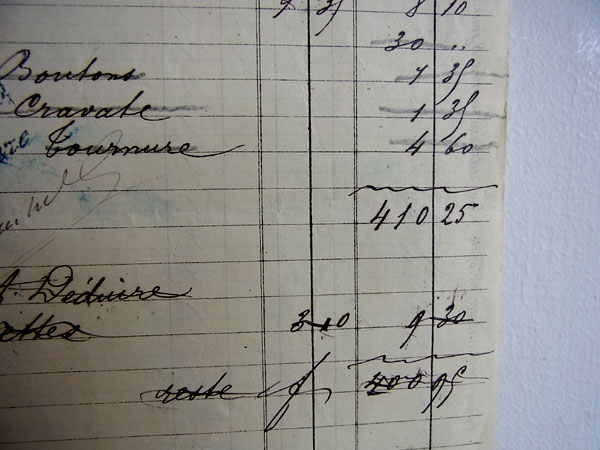 8 10
30 "
Boutons 7 35
Cravate 1 35
Tournure 4 60
410 25
Déduire
ettes 3 10 9 30
reste f 400 95